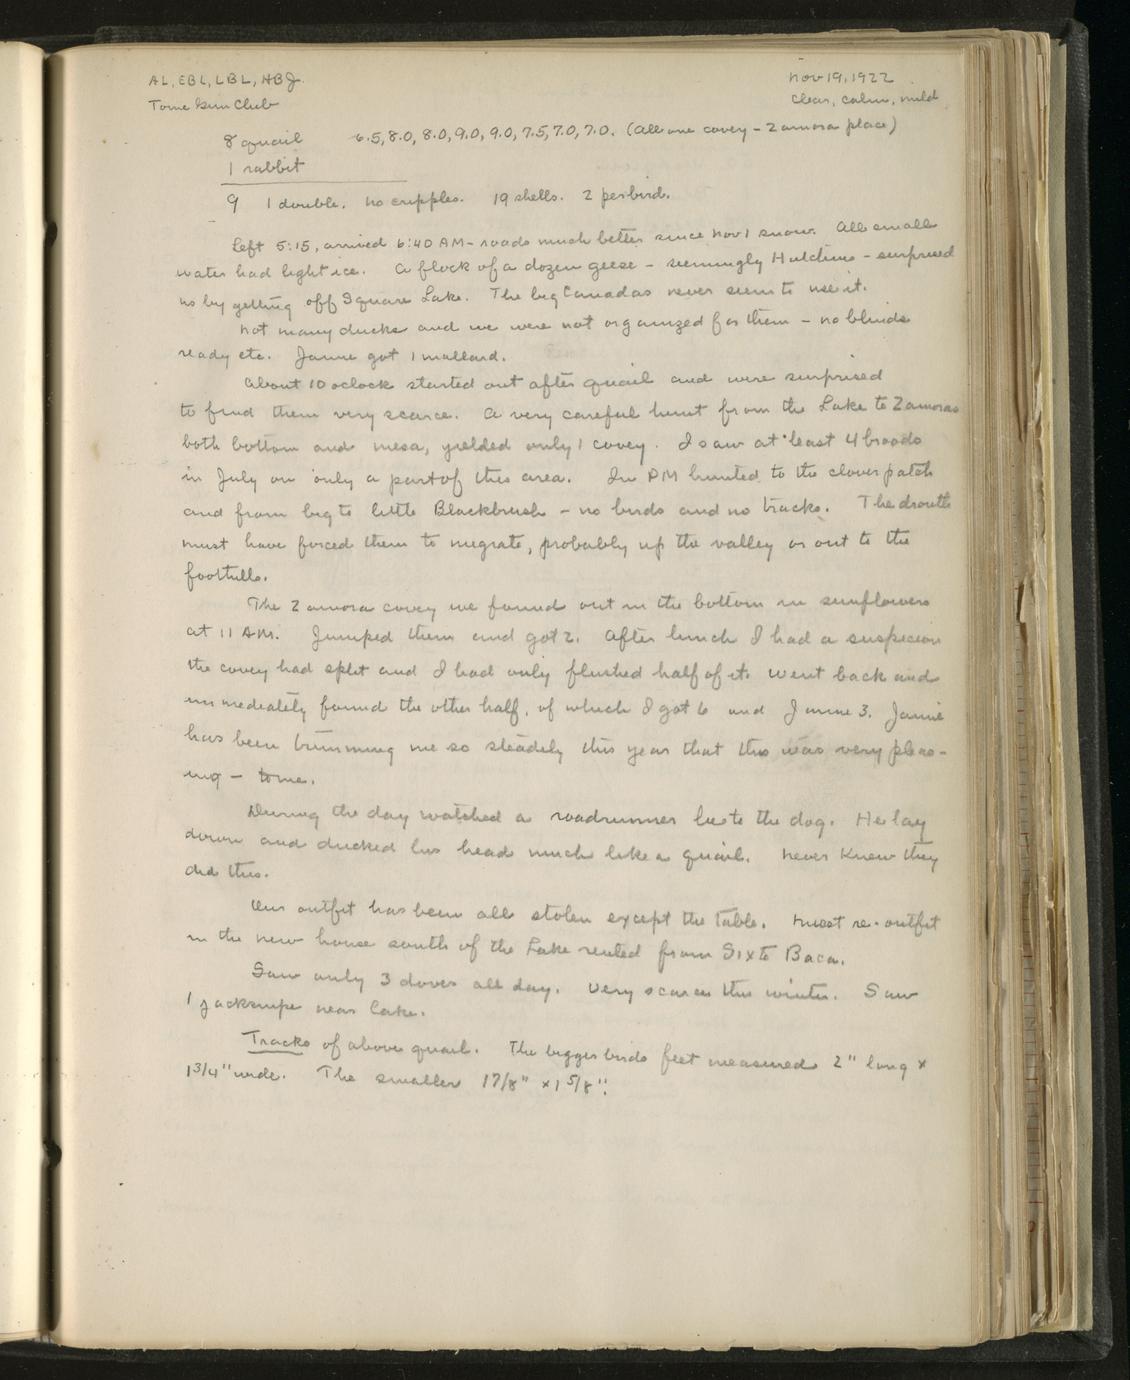 AL, EBL, LBL, HBJ.
Nov 19, 1922
Tome Gun Club
Clear, calm, mild
8 quail 6.5, 8.0, 8.0, 9.0, 9.0, 7.5, 7.0, 7.0. (All one covey - Zamora place)
1 rabbit
9 1 double. no cripples. 19 shells. 2 per bird.
Left 5:15, arrived 6:40 AM - roads much better since Nov 1 snow. All small
water had light ice. A flock of a dozen geese - seemingly Hutchins - surprised
us by getting off Square Lake. The big Canadas never seem to use it.
Not many ducks and we were not organized for them - no blinds
ready etc. Jamie got 1 mallard.
About 10 oclock started out after quail and were surprised
to find them very scarce. A very careful hunt from the Lake to Zamoras
both bottom and mesa, yielded only 1 covey. I saw at least 4 broods
in July on only a part of this area. In PM hunted to the clover patch
and from big to little Blackbrush - no birds and no tracks. The drouth
must have forced them to migrate, probably up the valley or out to the
foothills.
The Zamora covey we found out in the bottom in sunflowers
at 11 AM. Jumped them and got 2. After lunch I had a suspicion
the covey had split and I had only flushed half of it. Went back and
immediately found the other half, of which I got 6 and Jamie 3. Jamie
has been trimming me so steadily this year that this was very pleas-
ing - to me.
During the day watched a roadrunner lie to the dog. He lay
down and ducked his head much like a quail. Never knew they
did this.
Our outfit has been all stolen except the table. Must re-outfit
in the new house south of the Lake rented from Sixto Baca.
Saw only 3 doves all day. Very scarce this winter. Saw
1 jacksnipe near Lake.
Tracks of above quail. The bigger birds feet measured 2" long x
1 3/4" wide. The smaller 1 7/8" x 1 5/8".